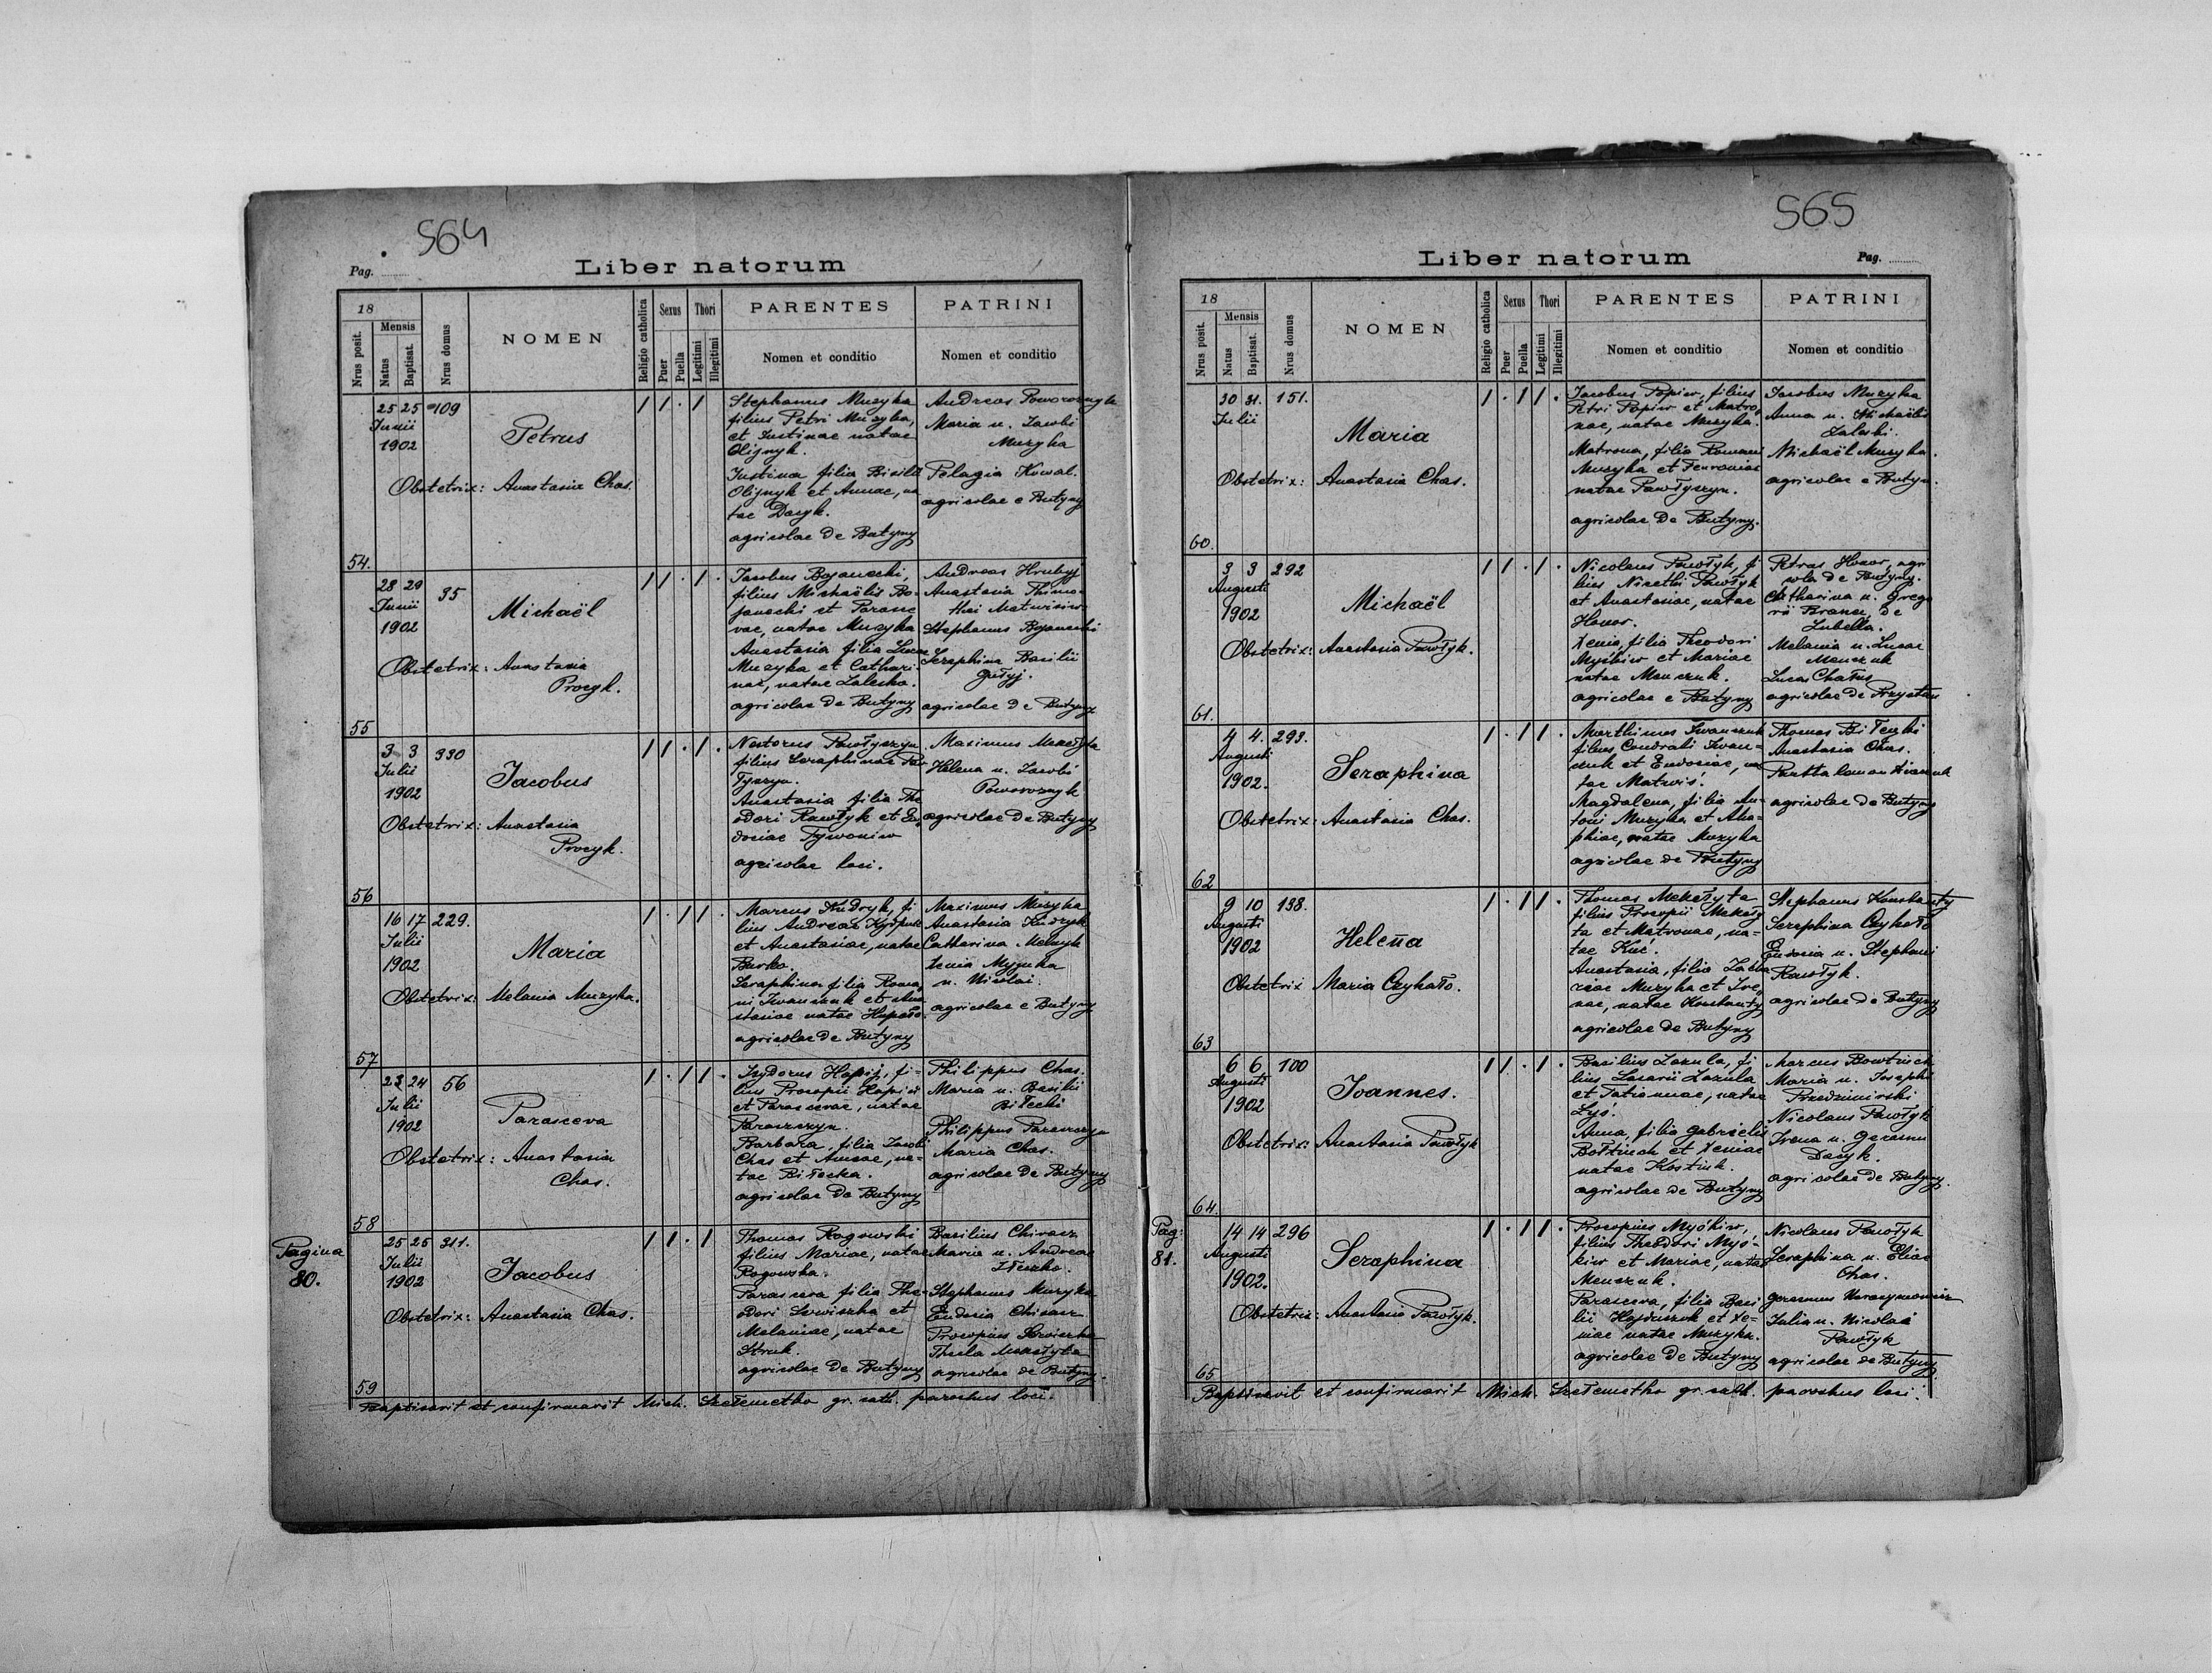 564
Pag. ........
Liber natorum
18
Mensis
Nrus posit.
Natus
Baptisat.
Nrus domus
NOMEN
Religio catholica
Sexus
Puer
Puella
Thori
Legitimi
Illegitimi
PARENTES
Nomen et conditio
PATRINI
Nomen et conditio
54.
25 25 109
Junii
1902
Petrus
Obstetrix: Anastasia Chas.
Stephanus Muzyka
filius Petri Muzyka,
et Justinae natae
Olijnyk.
Justina filia Basilii
Olijnyk et Annae, na
tae Dacyk.
agricolae de Butyny
Andreas Poworoznyk
Maria u. Jacobi
Muzyka
Pelagia Kowal.
agricolae e Butyny
55
28 29 35
Junii
1902
Michaël
Obstetrix: Anastasia
Procyk.
Jacobus Bojanecki,
filius Michaëlis Bo-
janecki et Parasce
vae, natae Muzyka
Anastasia filia Lucae
Muzyka et Cathari
nae, natae Zaleska.
agricolae de Butyny
Andreas Hrubyj
Anastasia Thimo-
thei Matwisiw
Stephanus Bojanecki
Seraphina Basilii
agricolae de Butyny
56
3 3 330
Julii
1902
Jacobus
Obstetrix: Anastasia
Procyk.
Nestorus Pawłyszyn
filius Seraphinae Paw
łyszyn.
Anastasia filia The
odori Pawłyk et Eu
dociae Tywoniw
agricolae loci.
Maximus Mekełyta
Helena u. Jacobi
Poworoznyk
agricolae de Butyny
57
16 17 229.
Julii
1902
Maria
Obstetrix: Melania Muzyka.
Marcus Kudryk, fi
lius Andreae Kudryk
et Anastasiae, natae
Burko.
Seraphina filia Roma
ni Iwanczuk et Ana
stasiae natae
agricolae de Butyny
Maximus Muzyka
Anastasia Kudryk
Catharina Melnyk
Xenia
u. Nicolai.
agricolae e Butyny
58
23 24 56
Julii
1902
Parasceva
Obstetrix: Anastasia
Chas.
Izydorus Hapij, fi-
lius Procopii Hapij
et Parascevae, natae
Paraszczyn.
Barbara, filia Jacobi
Chas et Annae, na-
tae Biłecka.
agricolae de Butyny
Philippus Chas.
Maria u. Basilii
Biłecki
Philippus Paraszczyn
Maria Chas.
agricolae de Butyny
Pagina
80.
59
25 25 311.
Julii
1902
Jacobus
Obstetrix: Anastasia Chas.
Thomas Rogowski
filius Mariae, natae
Rogowska.
Parasceva filia The-
odori Sawiszka et
Melaniae, natae
Struk.
agricolae de Butyny
Basilius Chirasz
Maria u. Andreae
Stephanus Muzyka
Eudosia Chirasz
Procopius
Thecla Mekełyta
agricolae de Butyny.
Baptisavit et confirmavit Mich. Szełemetko gr. cath. parochus loci.
565
Liber natorum
Pag. ........
18
Mensis
Nrus posit.
Natus
Baptisat.
Nrus domus
NOMEN
Religio catholica
Sexus
Puer
Puella
Thori
Legitimi
Illegitimi
PARENTES
Nomen et conditio
PATRINI
Nomen et conditio
60.
30 31. 151.
Julii
Maria
Obstetrix: Anastasia Chas.
Jacobus Popiw, filius
Petri Popiw et Matro
nae, natae Muzyka.
Matrona, filia Romani
Muzyka et Fevroniae
natae Pawłyszyn.
agricolae de Butyny.
Jacobus Muzyka
Anna u. Michaëlis
Zaleski.
Michaël Muzyka.
agricolae e Butyn.
61.
3 3 292
Augusti
1902
Michaël
Obstetrix: Anastasia Pawłyk.
Nicolaus Pawłyk, fi
lius Nicethi Pawłyk
et Anastasiae, natae
Xenia, filia Theodori
Myśkiw et Mariae
natae Menczuk.
agricolae e Butyny
Petrus
agri
cola de Butyny.
Catharina u. Grego
rii
de
Lubella.
Melania u. Lucae
Menczuk
Lucas
agricolae de Przystan
62
4 4. 293.
Augusti
1902.
Seraphina
Obstetrix: Anastasia Chas.
Marthinus Iwanczuk
filius Condrati Iwan-
czuk et Eudociae, na
tae Matwis.
Magdalena, filia An-
tonii Muzyka et Aha-
phiae, natae Muzyka
agricolae de Butyny
Thomas Biłecki
Anastasia Chas.
Panthalemon Iwanczuk
agricolae de Butyny
63
9 10 138.
Augusti
1902
Helena
Obstetrix Maria Czyhało.
Thomas Mekełyta
filius Procopii Mekeły
ta et Matronae, na-
tae Kuć.
Anastasia, filia Zacha
riae Muzyka et Ire
nae, natae Konstanty
agricolae de Butyny
Stephanus Konstanty
Seraphina Czyhało
Eudocia u. Stephani
Pawłyk.
agricolae de Butyny
64.
6 6 100
Augusti
1902
Joannes.
Obstetrix: Anastasia Pawłyk
Basilius Zazula, fi
lius Lazarii Zazula
et Tatiannae, natae
Lys.
Anna, filia Gabrielis
et Xeniae
natae Kostiuk.
agricolae de Butyny
Marcus
Maria u. Josephi
Nicolaus Pawłyk
Irena u. Gerasimi
Dacyk.
agricolae de Butyny.
Pag:
81.
65
14 14 296
Augusti
1902.
Seraphina
Obstetrix: Anastasia Pawłyk.
Procopius Myśkiw,
filius Theodori Myś-
kiw et Mariae, natae
Menczuk.
Parasceva, filia Basi
lii Hajduczok et Xe-
niae natae Muzyka.
agricolae de Butyny
Nicolaus Pawłyk
Seraphina u. Eliae
Chas.
Julia u. Nicolai
Pawłyk
agricolae de Butyny
Baptisavit et confirmavit Mich. Szełemetko gr. cath. parochus loci.